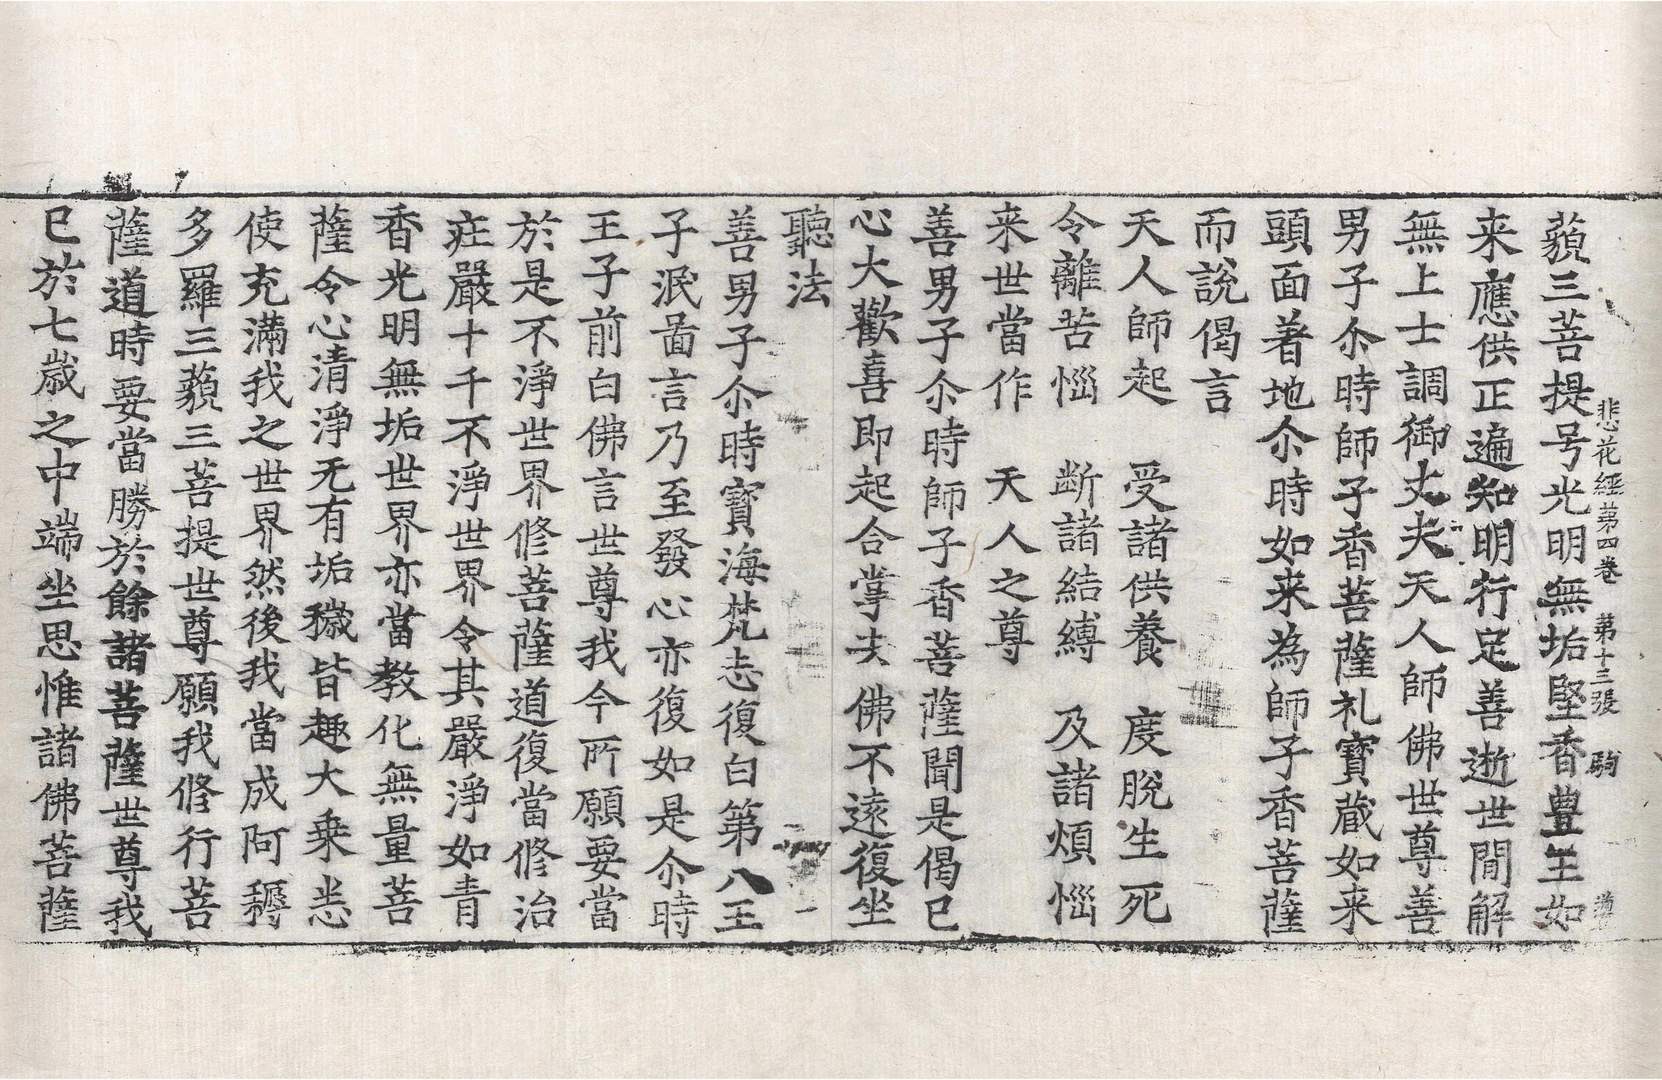 悲花經第四卷　第十三張　駒
藐三菩提号光明無垢堅香豊王如
来應供正遍知明行足善逝世閒解
無上士調御丈夫天人師佛世尊善
男子尒時師子香菩薩礼寶蔵如来
頭面著地尒時如来為師子香菩薩
而說偈言
天人師起　受諸供養　度脫生死
令離苦惱　断諸結縛　及諸煩惱
来世當作　天人之尊
善男子尒時師子香菩薩聞是偈已
心大歡喜即起合掌去佛不遠復坐
聽法
善男子尒時寶海梵志復白第八王
子泯啚言乃至發心亦復如是尒時
王子前白佛言世尊我今所願要當
於是不淨世界修菩薩道復當修治
莊嚴十千不淨世界令其嚴淨如青
香光明無垢世界亦當教化無量菩
薩令心清淨无有垢穢皆趣大乗悉
使充滿我之世界然後我當成阿耨
多羅三藐三菩提世尊願我修行菩
薩道時要當勝於餘諸菩薩世尊我
已於七歲之中端坐思惟諸佛菩薩